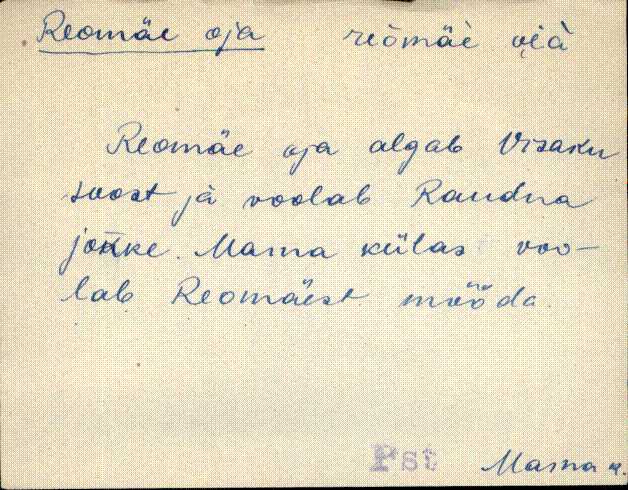 Reomäe oja reomäe
Reomäe oja algab Visaku
soost ja voolab Raudna
jokke. Mama külas voo-
lab Reomäest mööda.
Pst Mama k.